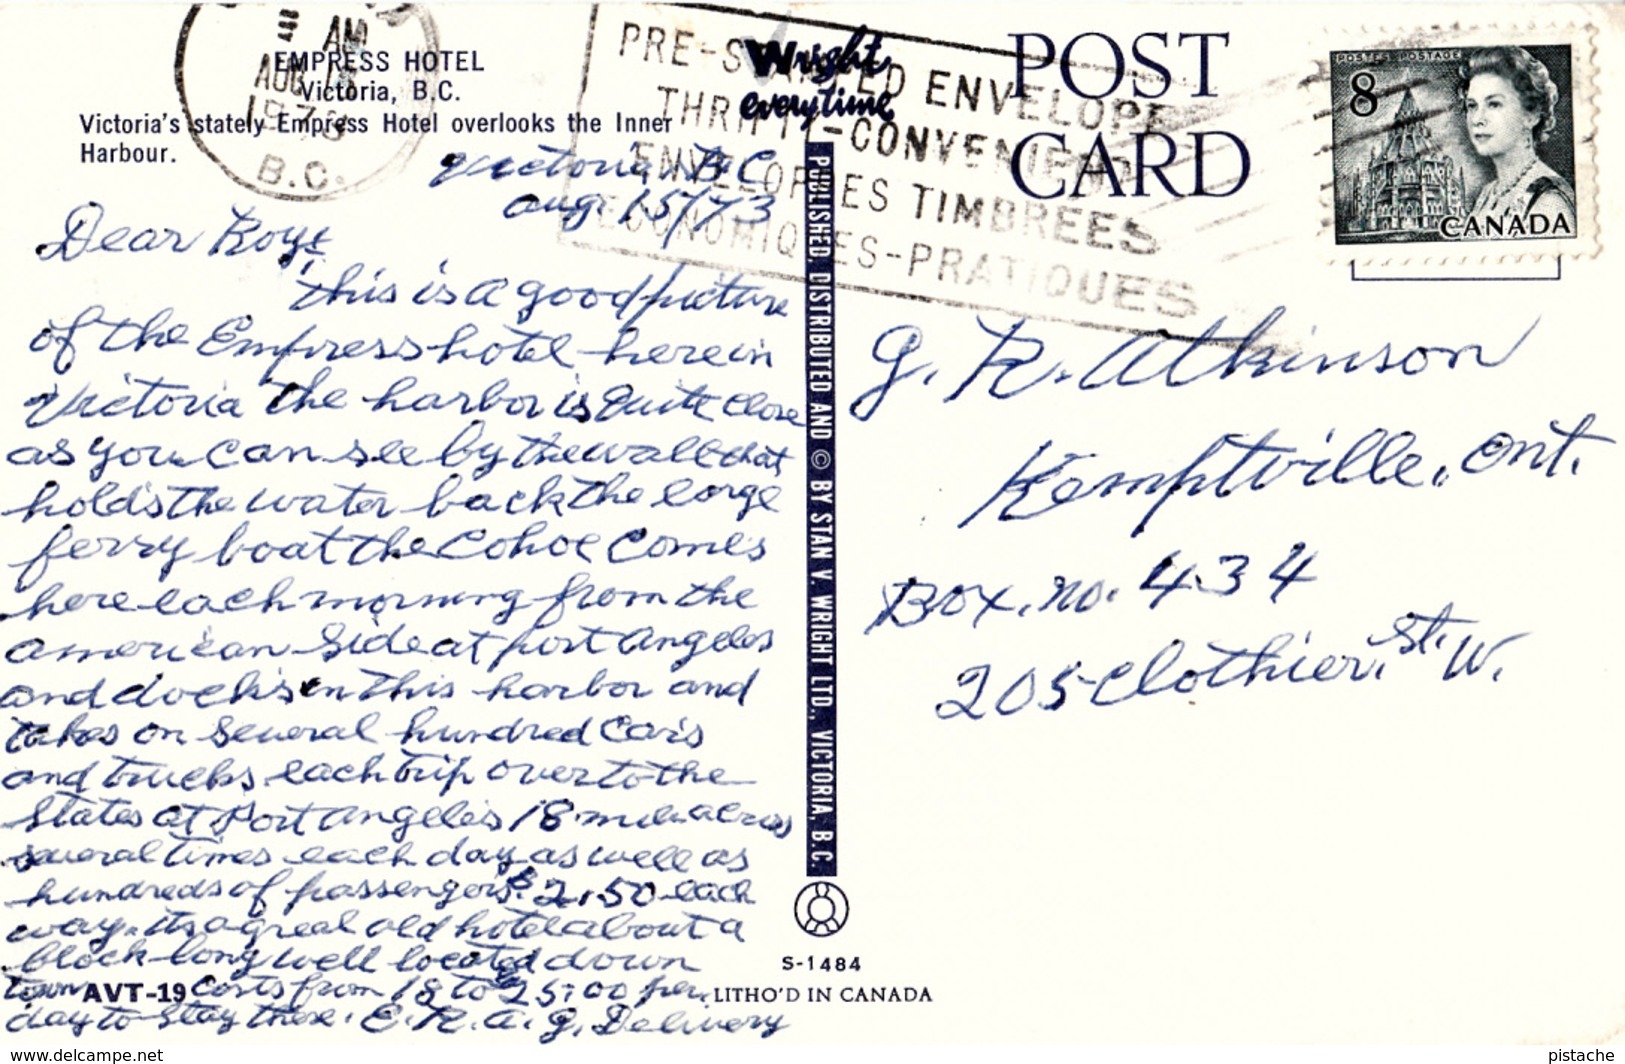 EMPRESS HOTEL
Victoria, B.C.
Victoria's stately Empress Hotel overlooks the Inner
Harbour.
AM
AUG
1973
B.C.
PRE-STAMPED ENVELOPE
THRIFTY-CONVENIENT
ENVELOPPES TIMBRÉES
ECONOMIQUES-PRATIQUES
Wright
everytime
POST
CARD
POSTES POSTAGE
8
CANADA
Victoria B.C
Aug. 15/73
Dear Roy:
this is a good picture
of the Empress hotel here in
Victoria the harbor is quite close
as you can see by the wall that
holds the water back the large
ferry boat the Cohoe Comes
here each morning from the
american side at port angeles
and docks in this harbor and
takes on several hundred Cars
and trucks each trip over to the
States at Port Angeles 18 mile across
several times each day as well as
hundreds of passengers $2.50 each
way. its a great old hotel about a
block long well located down
town Costs from 18 to $25.00 per
day to stay there. E.R.A. G. Delivery
G. R. Atkinson
Kemptville, Ont.
Box. no. 434
205 Clothier, St. W.
PUBLISHED, DISTRIBUTED AND © BY STAN V. WRIGHT LTD., VICTORIA, B.C.
S-1484
AVT-19
LITHO'D IN CANADA
www.delcampe.net
pistache